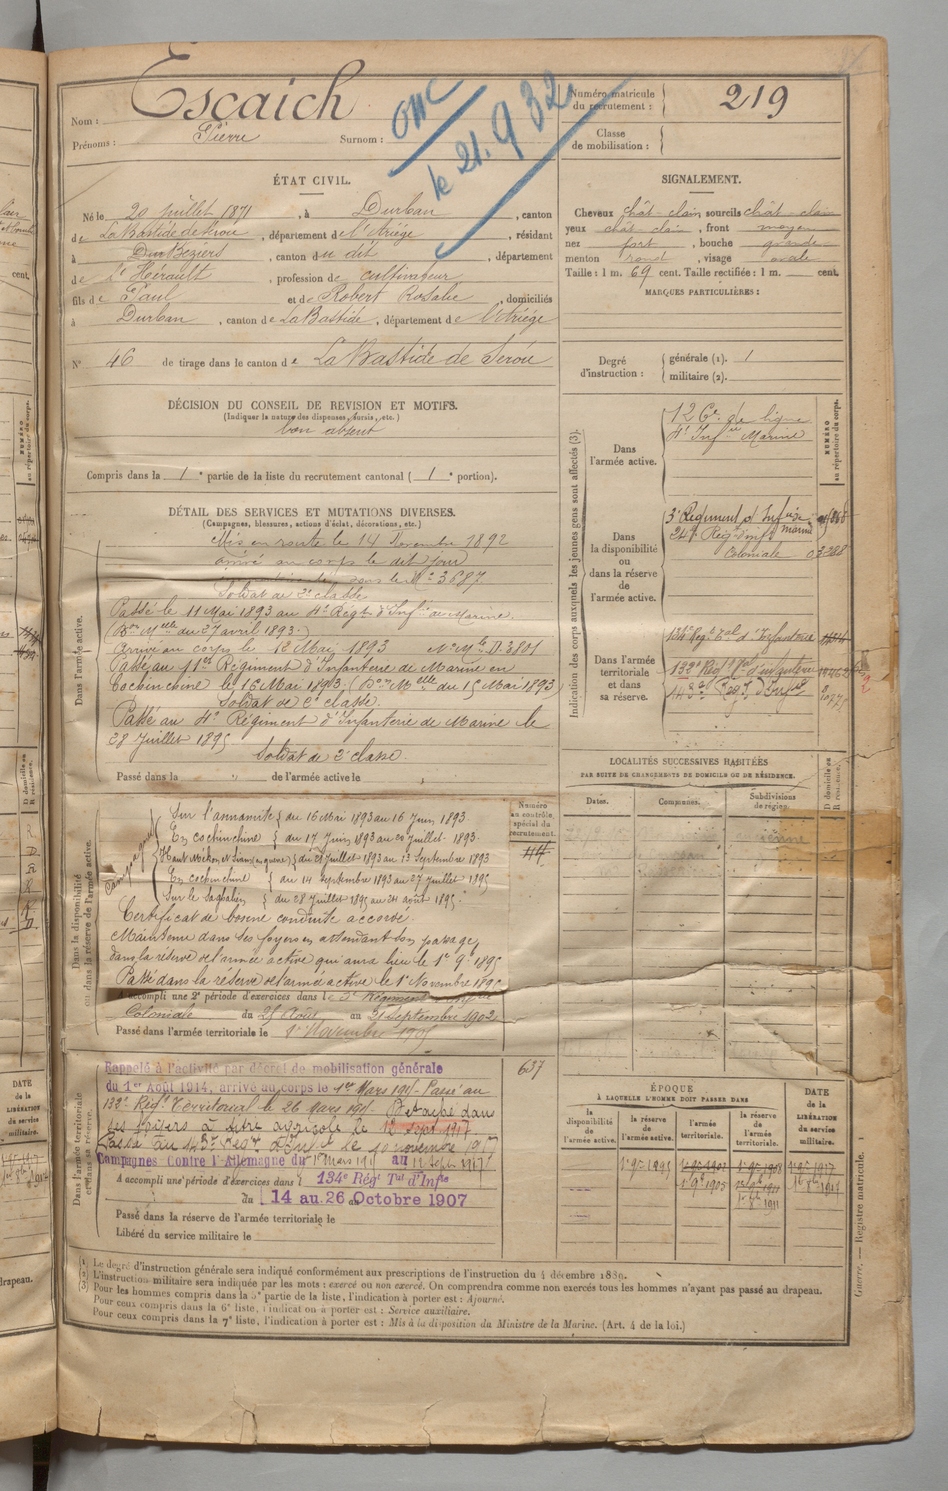 Nom : Escaich
Prénoms : Pierre Surnom :
onc
le 21.9 32.
Numéro matricule du recrutement : 219
Classe de mobilisation :
ÉTAT CIVIL.
Né le 20 juillet 1871, à Durban, canton
de La Bastide de Sérou, département de l'Ariège, résidant
à Béziers, canton du dit, département
de l'Hérault, profession de cultivateur
fils de Paul et de Robert Rosalie, domiciliés
à Durban, canton de La Bastide, département de l'Ariége
N° 46 de tirage dans le canton de La Bastide de Serou
SIGNALEMENT.
Cheveux chât-clain sourcils chât-clain
yeux chat clain, front moyen
nez fort, bouche grande
menton rond, visage ovale
Taille : 1 m. 69 cent. Taille rectifiée : 1 m. cent.
MARQUES PARTICULIÈRES :
Degré d'instruction : générale (1). 1
militaire (2).
DÉCISION DU CONSEIL DE REVISION ET MOTIFS.
(Indiquer la nature des dispenses, sursis, etc.)
bon absent
Compris dans la 1e partie de la liste du recrutement cantonal (1e portion).
DÉTAIL DES SERVICES ET MUTATIONS DIVERSES.
(Campagnes, blessures, actions d'éclat, décorations, etc.)
Dans l'armée active.
Mis en route le 14 Novembre 1892
arrivé au corps le dit jour
sous le N° 3887
Soldat de 2e classe
Passé le 11 Mai 1893 au 4e Régt d'Infie de Marine.
(Don Mlle du 27 avril 1893.)
Arrivé au corps le 12 Mai 1893 N° Mle D. 3801
Passé au 11me Régiment d'Infanterie de Marine en
Cochinchine le 16 Mai 1893, (Don Melle du 15 Mai 1893
Soldat de 2e classe.
Passé au 4e Régiment d'Infanterie de Marine le
28 Juillet 1895
Soldat de 2e classe.
Passé dans la " de l'armée active le
Indication des corps auxquels les jeunes gens sont affectés (3).
NUMÉRO au répertoire du corps.
Dans l'armée active.
126e de ligne
4e Infie Marine
Dans la disponibilité ou dans la réserve de l'armée active.
3e Régiment d'Infie de marine
24e Régt d'Infie
Coloniale 03288
Dans l'armée territoriale et dans sa réserve.
134e Régt Teal d'Infanterie
132e Régt Tal d'Infanterie
143e
LOCALITÉS SUCCESSIVES HABITÉES
PAR SUITE DE CHANGEMENTS DE DOMICILE OU DE RÉSIDENCE.
Dates. Communes. Subdivisions de région. D domicile ou R résidence.
Dans la disponibilité ou dans la réserve de l'armée active.
Numéro au contrôle spécial du recrutement.
44
Campagnes
Sur l'annamite du 16 Mai 1893 au 16 Juin 1893
En cochinchine du 17 Juin 1893 au 20 juillet 1893
Haut Mékon et Siam (en guerre) du 21 Juillet 1893 au 13 Septembre 1893
En cochinchine du 14 Septembre 1893 au 27 juillet 1895
Sur le du 28 Juillet 1895 au 21 août 1895
Certificat de bonne conduite accordé.
Maintenu dans ses foyers en attendant son passage
dans la réserve de l'armée active qui aura lieu le 1er 9 1895
Passé dans la réserve de l'armée active le 1er Novembre 1895
A accompli une 2e période d'exercices dans le 3e Régiment
Coloniale du 25 Août au 21 Septembre 1902
Passé dans l'armée territoriale le 1er Novembre 1905
Dans l'armée territoriale et dans sa réserve.
637
Rappelé à l'activité par décret de mobilisation générale
du 1er Août 1914, arrivé au corps le 1er Mars 1915. Passé au
132e Régt Territorial le 26 Mars 1915. Détaché dans
ses foyers à titre agricole le 12 Sept 1917
Passé au 143e le 10 novembre 1917
Campagnes Contre l'Allemagne du 1er Mars 1915 au 12 Septe 1917
A accompli une période d'exercices dans le 134e Régt Tal d'Infie
du 14 au 26 Octobre 1907
Passé dans la réserve de l'armée territoriale le
Libéré du service militaire le
ÉPOQUE
À LAQUELLE L'HOMME DOIT PASSER DANS
la disponibilité de l'armée active.
la réserve de l'armée active.
l'armée territoriale.
la réserve de l'armée territoriale.
DATE de la LIBÉRATION du service militaire.
1er 9bre 1895
1er 9 1905
(1) Le degré d'instruction générale sera indiqué conformément aux prescriptions de l'instruction du 4 décembre 1889.
(2) L'instruction militaire sera indiquée par les mots : exercé ou non exercé. On comprendra comme non exercés tous les hommes n'ayant pas passé au drapeau.
(3) Pour les hommes compris dans la 5e partie de la liste, l'indication à porter est : Ajourné.
Pour ceux compris dans la 6e liste, l'indication à porter est : Service auxiliaire.
Pour ceux compris dans la 7e liste, l'indication à porter est : Mis à la disposition du Ministre de la Marine. (Art. 4 de la loi.)
Guerre. — Registre matricule. 1